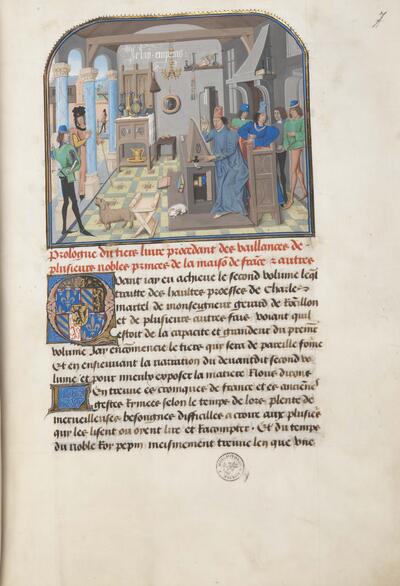 7
Prologue du tiers livre procedant des vaillances de
plusieurs nobles princes de la maison de frãce & autres
Quant jay eu achieve le second volume leql̃
traitte des haultes proesses de Charles
martel de monseigneur gerard de
et de plusieurs autres fais voiant quil
estoit de la capacite et grandeur du premier
volume Jay encõmencie le tiers qui sera de pareille forme
Et en ensieuvant la narration du devantdit second vo
lume et pour mieulx exposer la matiere Nous dirons
On treuve es croniques de france et es anciennes
gestes selon le temps de lors plente de
merveilleuses besongnes difficilles a croire aux plusieurs
qui les lisent ou oyent lire et racompter. Et du temps
du noble Roy pepin meismement treuve len que une